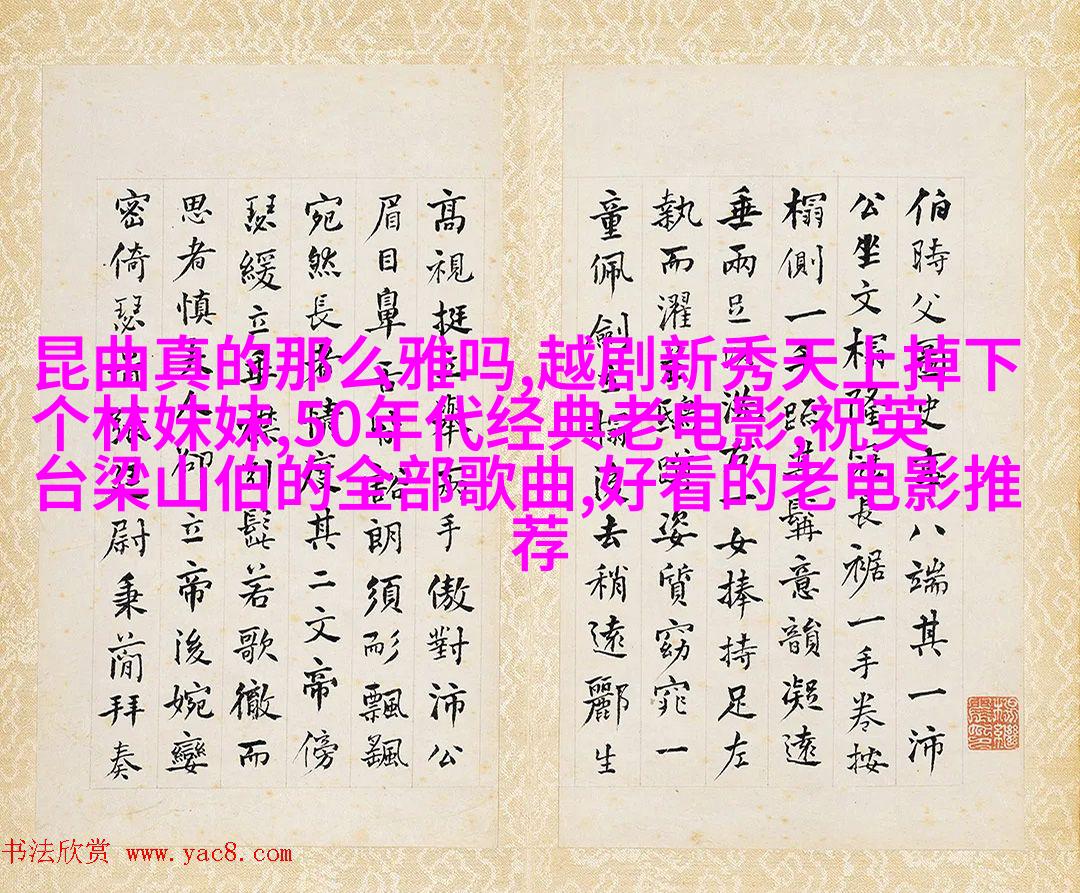 昆曲真的那么雅吗,越剧新秀天上掉下
个林妹妹,50年代经典老电影,祝英
台梁山伯的全部歌曲,好看的老电影推
荐
伯時父圖史事八端其一沛
公坐文榻隆準長裾一手卷按
榻側一手踞其意韻凝遠
垂兩足一女捧持足左
執而濯姿質窈窕一
童佩劍去稍遠酈生
高視挺立舉手傲對沛公
眉目鼻朗須飄飄
宛然長者情度其二文帝傍
瑟緩立髭若歌徹而
思者慎夫人却立帝後婉孌
密倚瑟張廷尉秉簡拜奏
书法欣赏 www.yac8.com